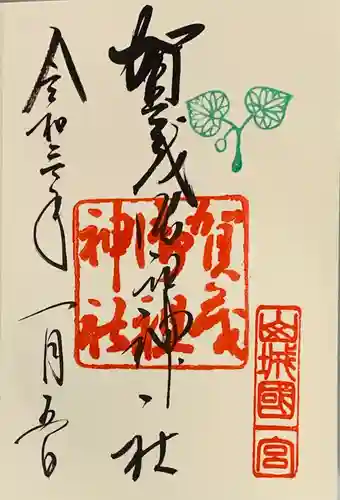 賀茂御祖神社
賀茂
御祖
神社
山城國一宮
令和六年
一月五日